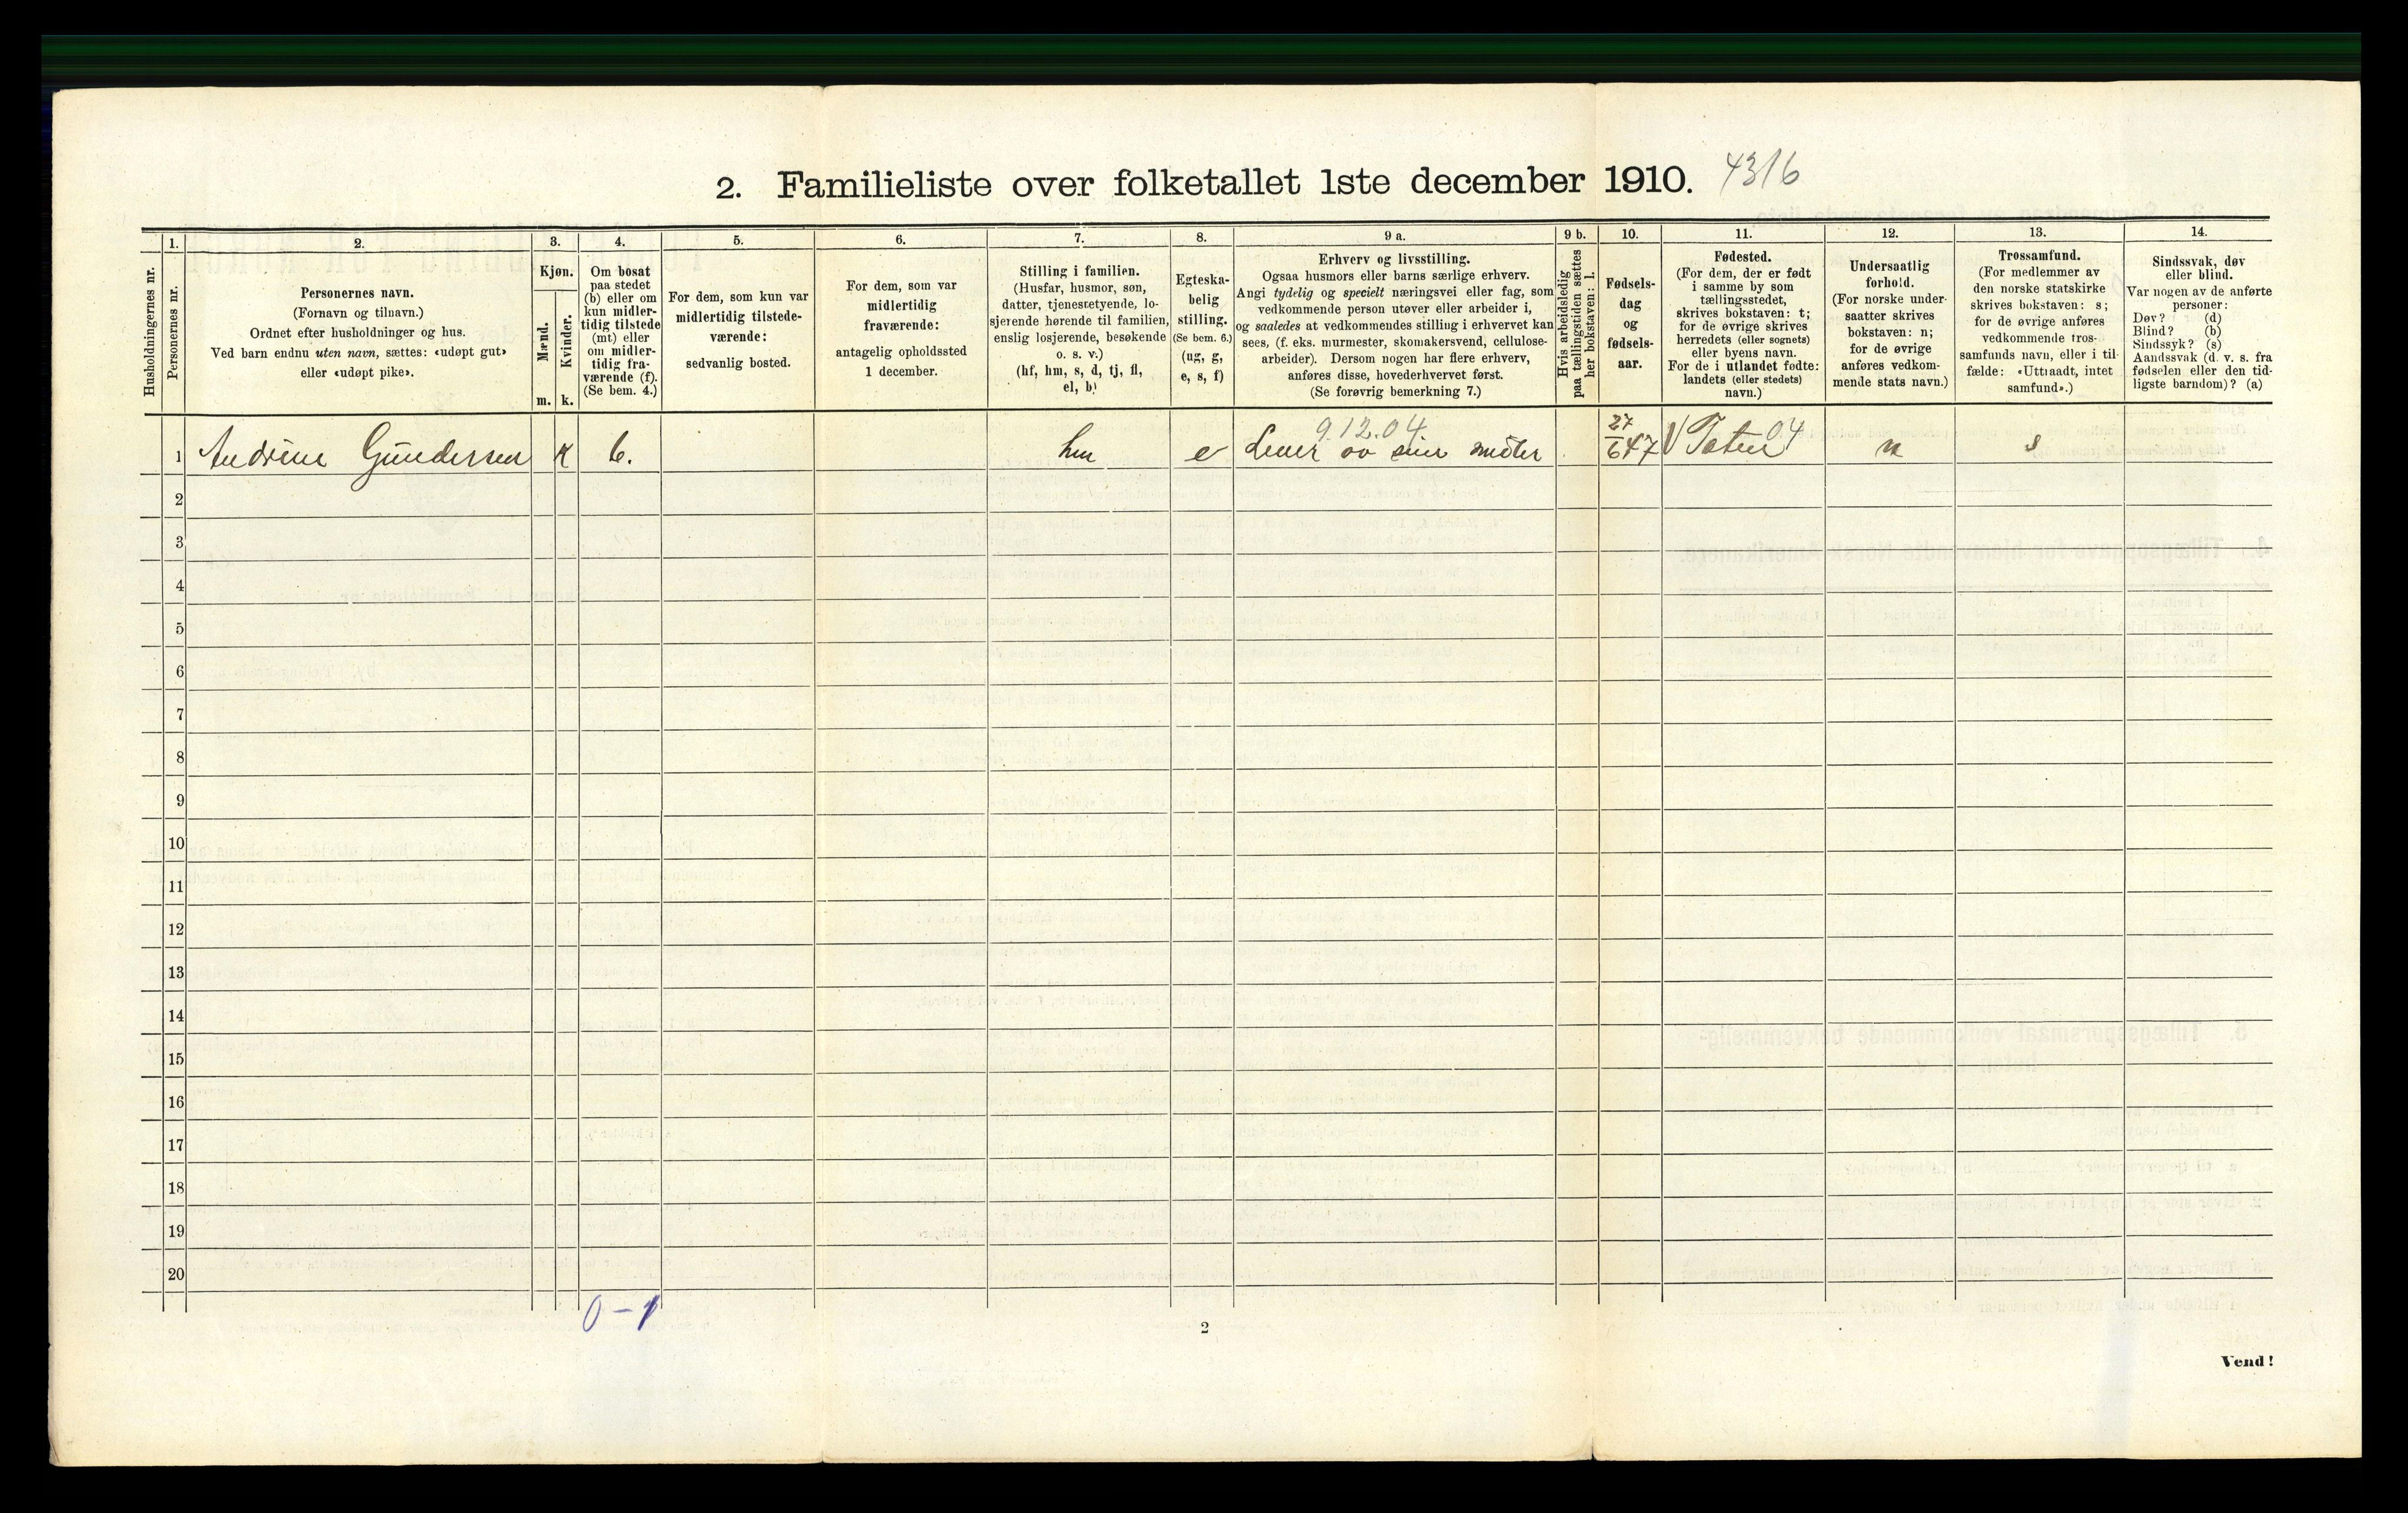 2. Familieliste over folketallet 1ste december 1910. 4316
Husholdningernes nr.
1.
Personernes nr.
2.
Personernes navn.
(Fornavn og tilnavn.)
Ordnet efter husholdninger og hus.
Ved barn endnu uten navn, sættes: «udøpt gut»
eller «udøpt pike».
3.
Kjøn.
Mænd.
Kvinder.
m. k.
4.
Om bosat
paa stedet
(b) eller om
kun midler-
tidig tilstede
(mt) eller
om midler-
tidig fra-
værende (f).
(Se bem. 4.)
5.
For dem, som kun var
midlertidig tilstede-
værende:
sedvanlig bosted.
6.
For dem, som var
midlertidig
fraværende:
antagelig opholdssted
1 december.
7.
Stilling i familien.
(Husfar, husmor, søn,
datter, tjenestetyende, lo-
sjerende hørende til familien,
enslig losjerende, besøkende
o. s. v.)
(hf, hm, s, d, tj, fl,
el, b)
8.
Egteska-
belig
stilling.
(Se bem. 6.)
(ug, g,
e, s, f)
9 a.
Erhverv og livsstilling.
Ogsaa husmors eller barns særlige erhverv.
Angi tydelig og specielt næringsvei eller fag, som
vedkommende person utøver eller arbeider i,
og saaledes at vedkommendes stilling i erhvervet kan
sees, (f. eks. murmester, skomakersvend, cellulose-
arbeider). Dersom nogen har flere erhverv,
anføres disse, hovederhvervet først.
(Se forøvrig bemerkning 7.)
9 b.
Hvis arbeidsledig
paa tællingstiden sættes
her bokstaven: l.
10.
Fødsels-
dag
og
fødsels-
aar.
11.
Fødested.
(For dem, der er født
i samme by som
tællingsstedet,
skrives bokstaven: t;
for de øvrige skrives
herredets (eller sognets)
eller byens navn.
For de i utlandet fødte:
landets (eller stedets)
navn.)
12.
Undersaatlig
forhold.
(For norske under-
saatter skrives
bokstaven: n;
for de øvrige
anføres vedkom-
mende stats navn.)
13.
Trossamfund.
(For medlemmer av
den norske statskirke
skrives bokstaven: s;
for de øvrige anføres
vedkommende tros-
samfunds navn, eller i til-
fælde: «Uttraadt, intet
samfund».)
14.
Sindssvak, døv
eller blind.
Var nogen av de anførte
personer:
Døv? (d)
Blind? (b)
Sindssyk? (s)
Aandssvak (d. v. s. fra
fødselen eller den tid-
ligste barndom)? (a)
9.12.04
1 Andrine Gundersen k b. hm e Lever av sine midler 27/6 47 V Toten 04 n s
2
3
4
5
6
7
8
9
10
11
12
13
14
15
16
17
18
19
20
0 – 1
2
Vend!